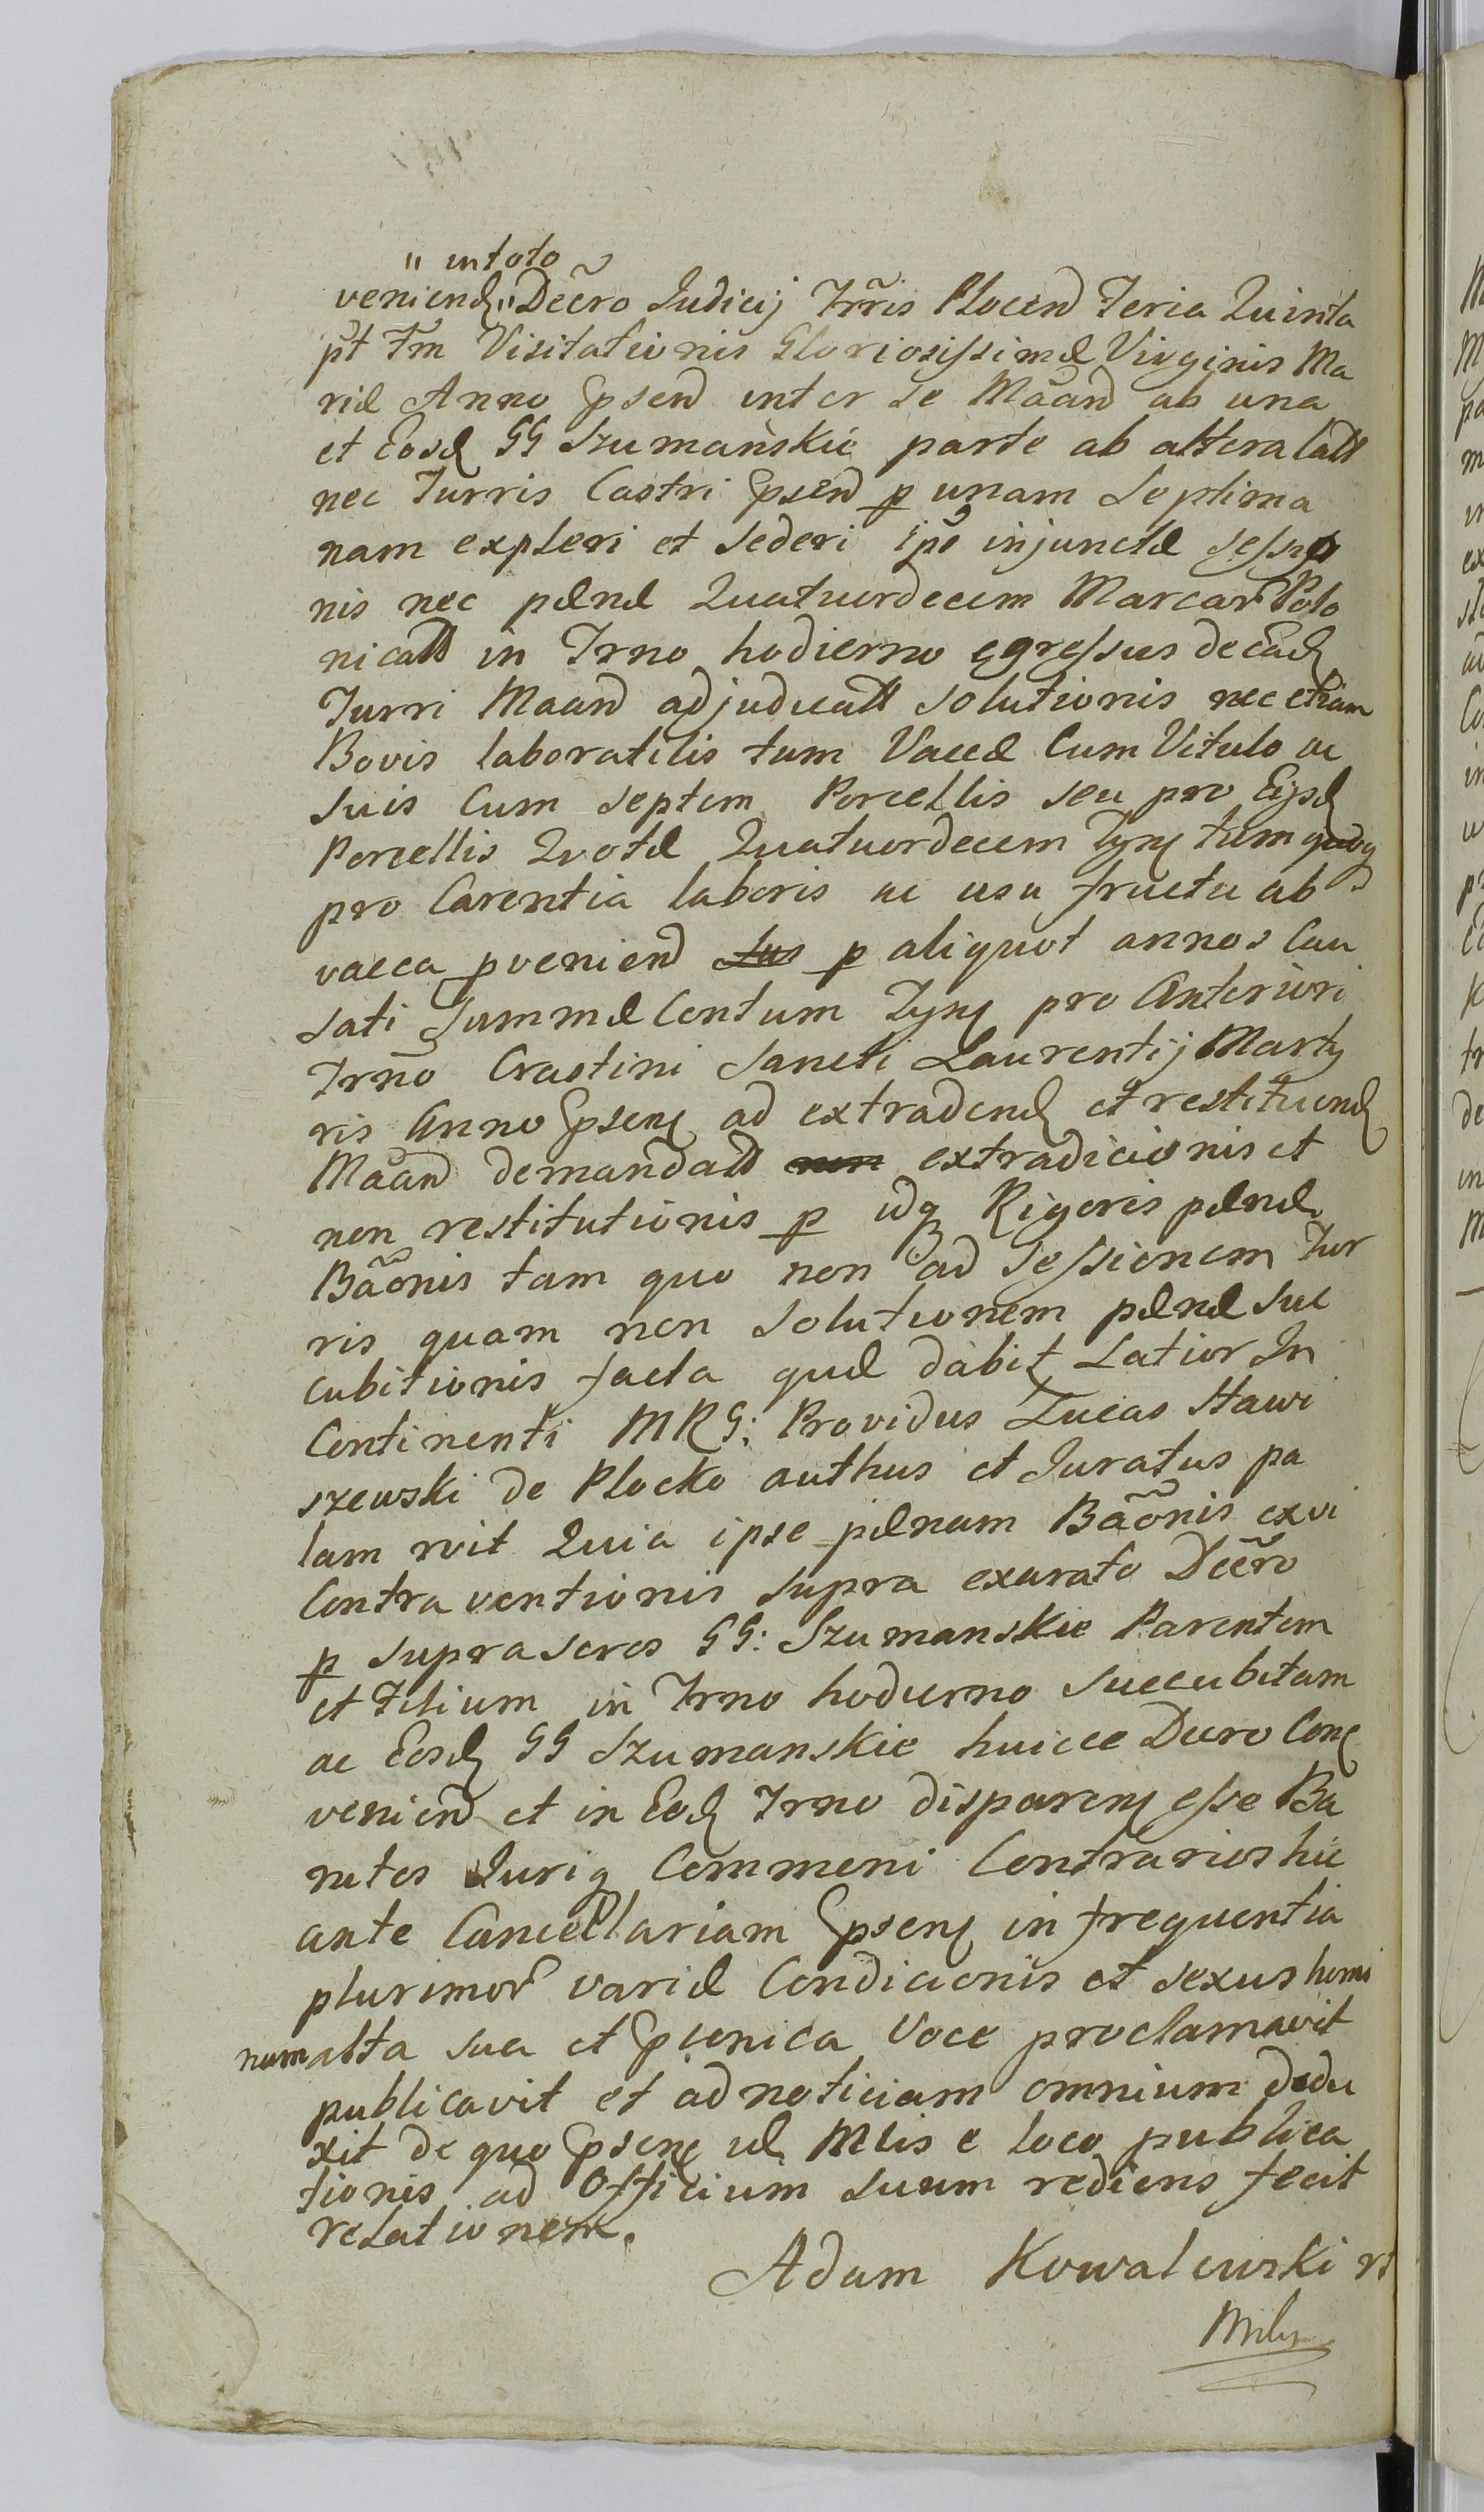 " in toto
veniend " Decro Judicij Trris Plocen Feria Quinta
pt Fm Visitationis Gloriosissimæ Virginis Ma
riæ Anno Psen inter se Maan ab una
et Eosd GG Szumańskie parte ab altera latt
nec Turris Castri Psen p unam Septima
nam expleri et sederi ipo injunctæ sessio
nis nec pænæ Quatuordecem Marcar Polo
nicatt in Trno hodierno egressus de ead
Turri Maan adjudicatt solutionis nec etiam
Bovis laboratilis tum Vaccæ Cum Vitulo ac
Suis Cum septem Porcellis seu pro Eijsd
Porcellis Quotæ Quatuordecem Tyn tum quoq
pro Carentia laboris ac usu fructu ab
vacca pvenien p aliquot annos Cau
sati Summæ Centum Tyn pro Anteriori
Trno Crastini Sancti Laurentij Marty
ris Anno Psen ad extradend et restituend
Maan demandatt non extradicionis et
non restitutionis p idq Rigoris pænæ
Bãonis tam quo non ad sessionem Tur
ris quam non solutionem pænæ suc
cubitionis facta quæ dabit Latior In
Continenti MRG: Providus Lucas Stawi
szewski de Plocko authus et Juratus pa
lam rvit Quia ipse pænam Bãonis ex vi
Contraventionis supra exarato Decro
p suprascros GG: Szumanskie Parentem
et Filium in Trno hodierno succubitam
ac Eosd GG Szumanskie huicce Decro Con
venien et in Eod Trno disparen esse Ba
nitos Juriq Commoni Contrarios hic
ante Cancellariam Psen in frequentia
plurimor variæ Condicionis et sexus homi
num alta sua et Psonica Voce proclamavit
publicavit et ad noticiam omnium dedu
xit de quo Psen ul Mlis e loco publica
tionis ad Officium suum rediens fecit
relationem.
Adam Kowalewski